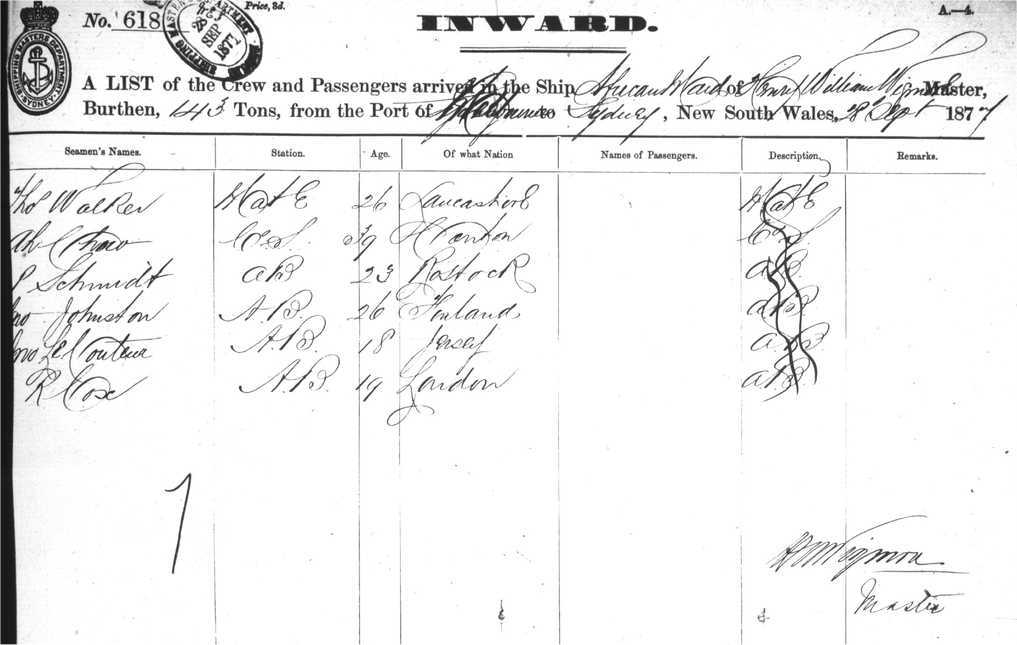 No. 618
Price, 3d.
INWARD.
A.—4.
SHIPPING MASTERS DEPARTMENT SYDNEY
28 SEP 1877
A LIST of the Crew and Passengers arrived in the Ship African Maid of Henry William Master,
Burthen, 143 Tons, from the Port of to Sydney, New South Wales, 28 Sept 1877
Seamen's Names. Station. Age. Of what Nation Names of Passengers. Description. Remarks.
Thos Walker Mate 26 Lancashire Mate
Ah Chow C&S. 39 Canton C&S.
P Schmidt AB 23 Rostock AB
Jno Johnston A.B. 26 Finland AB
Jno Le Couteur A.B. 18 Jersey AB
R Cox A.B. 19 London AB
7
Master